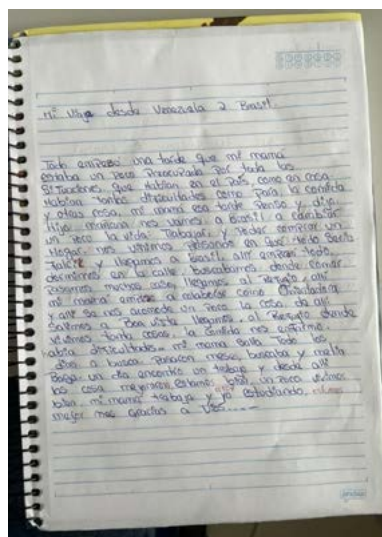 Mi viaje desde Venezuela a Brasil.
Todo empezó una tarde que mi mamá
estaba un poco Preocupada Por todo las
Situaciones que Habian en el País, como en casa
Habian tantas dificultades como Para la comida
y otras cosa, mi mamá esa tarde Penso y dijo
Hijo mañana nos vamos a Brasil a cambiar
un Poco la vida. Trabajar, y Poder comprar un
Hogar. nos venimos Pensando en que todo seria
facil y llegamos a Brasil, alli empezo todo.
Dormimos en la calle, buscabamos donde comer
Pasamos muchas cosa, llegamos al Refugio, alli
mi mamá empezo a como
y alli se nos acomodo un Poco la cosa, de alli
Salimos a Boa vista llegamos al Refugio donde
vivimos tanta cosas, la comida nos enfermo.
habia dificultades, mi mama salia Todo los
dias a buscar. Pasaron mese, buscaba y metia
un dia encontro un trabajo y desde alli
las cosa mejoraron, estamos bien, un Poco vivimos
bien, mi mamá trabaja y yo estudiando,
mejor mas gracias a Dios....